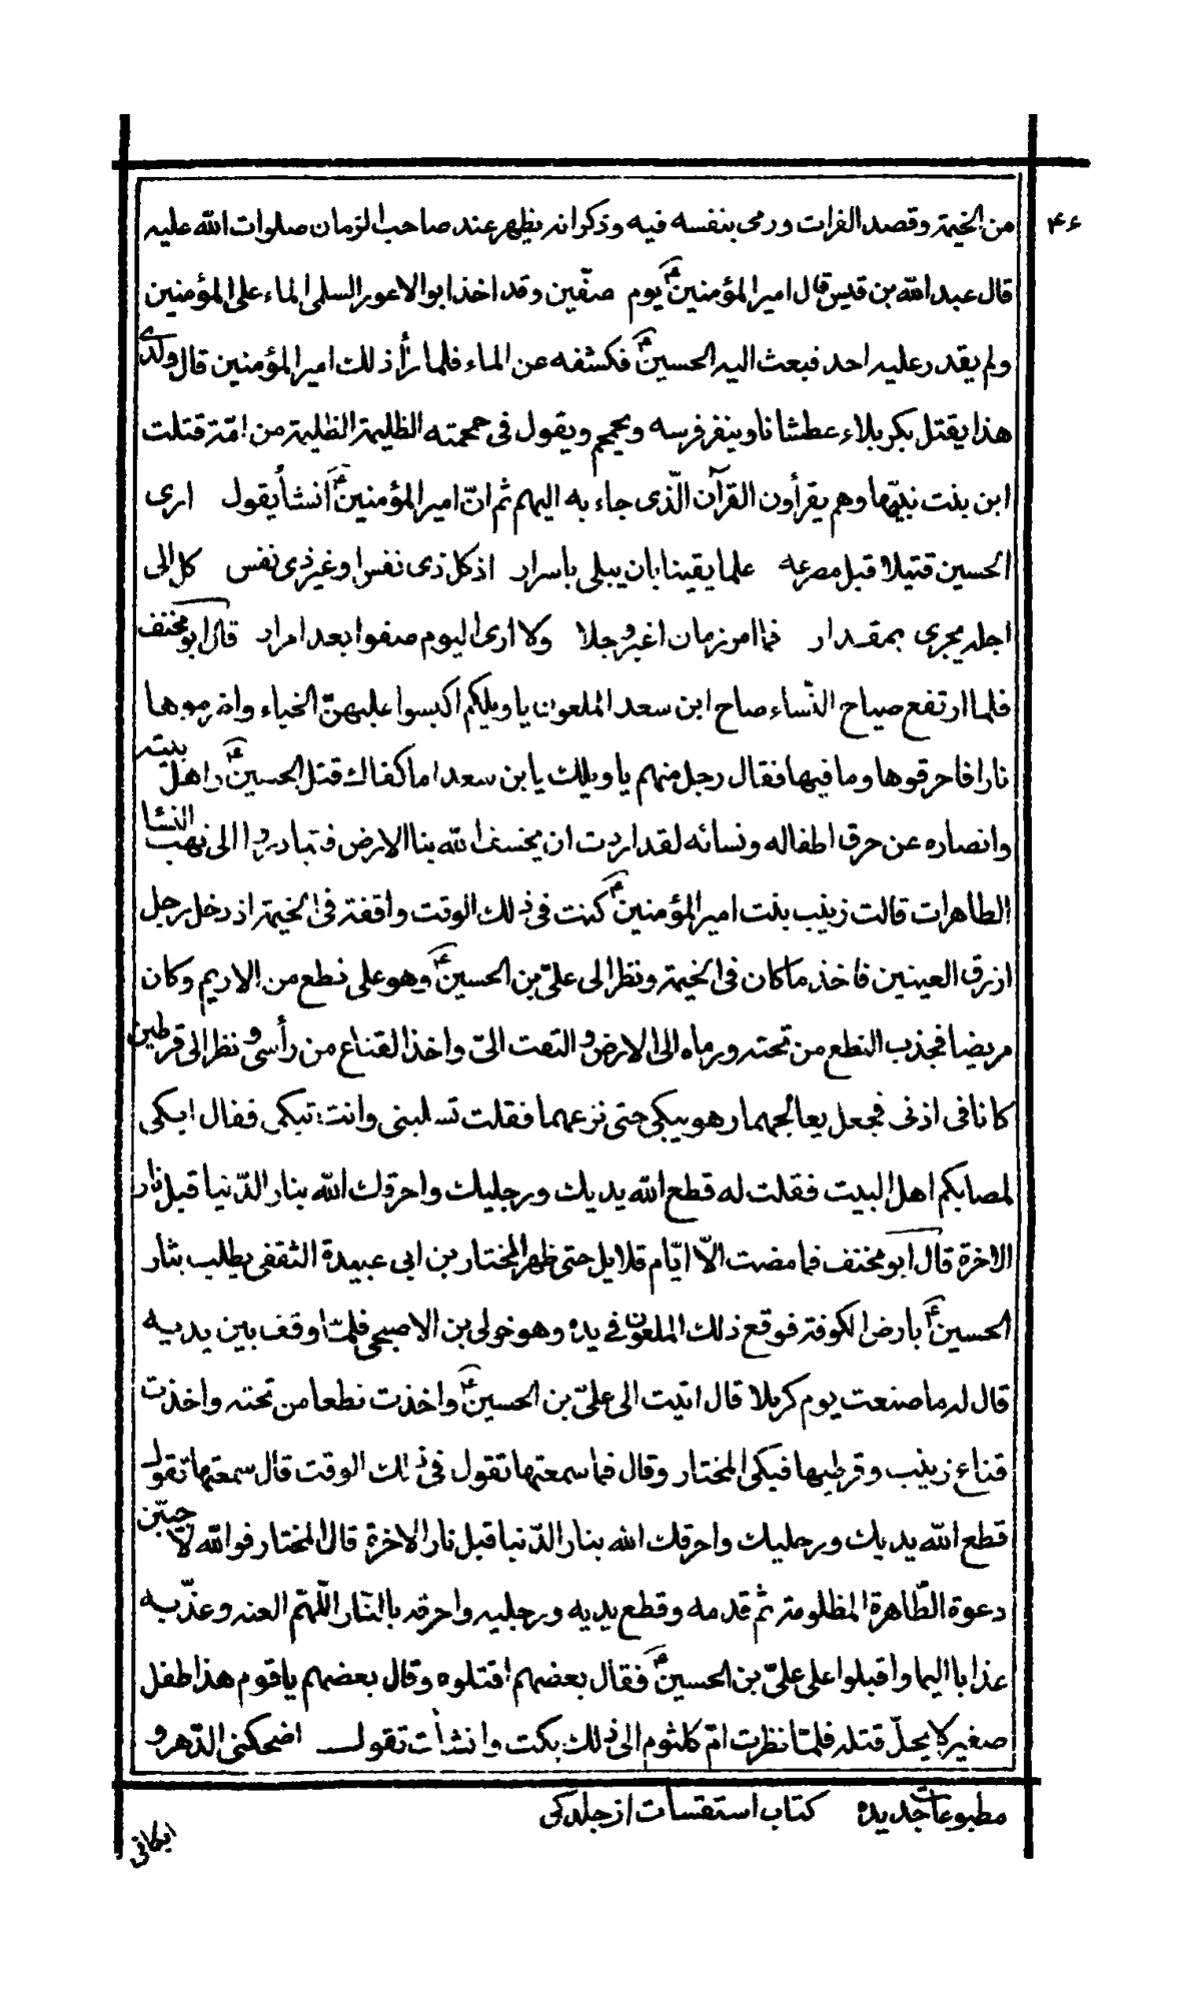 ۴۶
من الخيمة وقصد الفرات ورمى بنفسه فيه وذكر انه يظهر عند صاحب الزمان صلوات الله عليه
قال عبد الله بن قيس قال امير المؤمنين ع يوم صفّين وقد اخذ ابو الاعور السلمى الماء على المؤمنين
ولم يقدر عليه احد فبعث اليه الحسين ع فكشفه عن الماء فلما رأ ذلك امير المؤمنين قال ولدى
هذا يقتل بكربلاء عطشانا وينفر فرسه ويحمحم ويقول فى حمحمته الظليمة الظليمة من امّة قتلت
ابن بنت نبيّها وهم يقرأون القرآن الّذى جاء به اليهم ثم انّ امير المؤمنين ع أنشأ يقول ارى
الحسين قتيلا قبل مصرعه علما يقينا بان يبلى باسرار اذ كل ذى نفس او غير ذى نفس كل الى
اجله يجرى بمقدار فما امر زمان اغبر وجلا ولا ارى اليوم صفوا بعد امرار قال ابو مخنف
فلما ارتفع صياح النّساء صاح ابن سعد الملعون يا ويلكم اكبسوا عليهنّ الخباء واضرموها
نارا فاحرقوها وما فيها فقال رجل منهم يا ويلك يا بن سعد اما كفاك قتل الحسين ع واهل بيته
وانصاره عن حرق اطفاله ونسائه لقد اردت ان يخسف الله بنا الارض فتبادروا الى نهب النسا
الطاهرات قالت زينب بنت امير المؤمنين ع كنت فى ذلك الوقت واقفة فى الخيمة اذ دخل رجل
ازرق العينين فاخذ ما كان فى الخيمة ونظر الى علىّ بن الحسين ع وهو على نطع من الاديم وكان
مريضا فجذب النطع من تحته ورماه الى الارض والتفت الىّ واخذ القناع من رأسى ونظر الى قرطين
كانا فى اذنى فجعل يعالجهما وهو يبكى حتى نزعهما فقلت تسلبنى وانت تبكى فقال ابكى
لمصابكم اهل البيت فقلت له قطع الله يديك ورجليك واحرقك الله بنار الدّنيا قبل نار
الاخرة قال ابو مخنف فما مضت الّا ايّام قلايل حتى ظهر المختار بن ابى عبيدة الثقفى يطلب بثار
الحسين ع بارض الكوفة فوقع ذلك الملعون فى يده وهو خولى بن الاصبحى فلمّا وقف بين يديه
قال له ما صنعت يوم كربلا قال اتيت الى علىّ بن الحسين ع واخذت نطعا من تحته واخذت
قناع زينب وقرطيها فبكى المختار وقال فما سمعتها تقول فى ذلك الوقت قال سمعتها تقول
قطع الله يديك ورجليك واحرقك الله بنار الدّنيا قبل نار الاخرة قال المختار فوالله لاجيبن
دعوة الطّاهرة المظلومة ثم قدمه وقطع يديه ورجليه واحرقه بالنّار اللّهم العنه وعذّبه
عذابا اليما واقبلوا على علىّ بن الحسين ع فقال بعضهم اقتلوه وقال بعضهم يا قوم هذا طفل
صغير لا يحلّ قتله فلمّا نظرت امّ كلثوم الى ذلك بكت وانشأت تقول اضحكنى الدّهر و
مطبوعات جديده كتاب استقسات از جلدكى
ابكانى